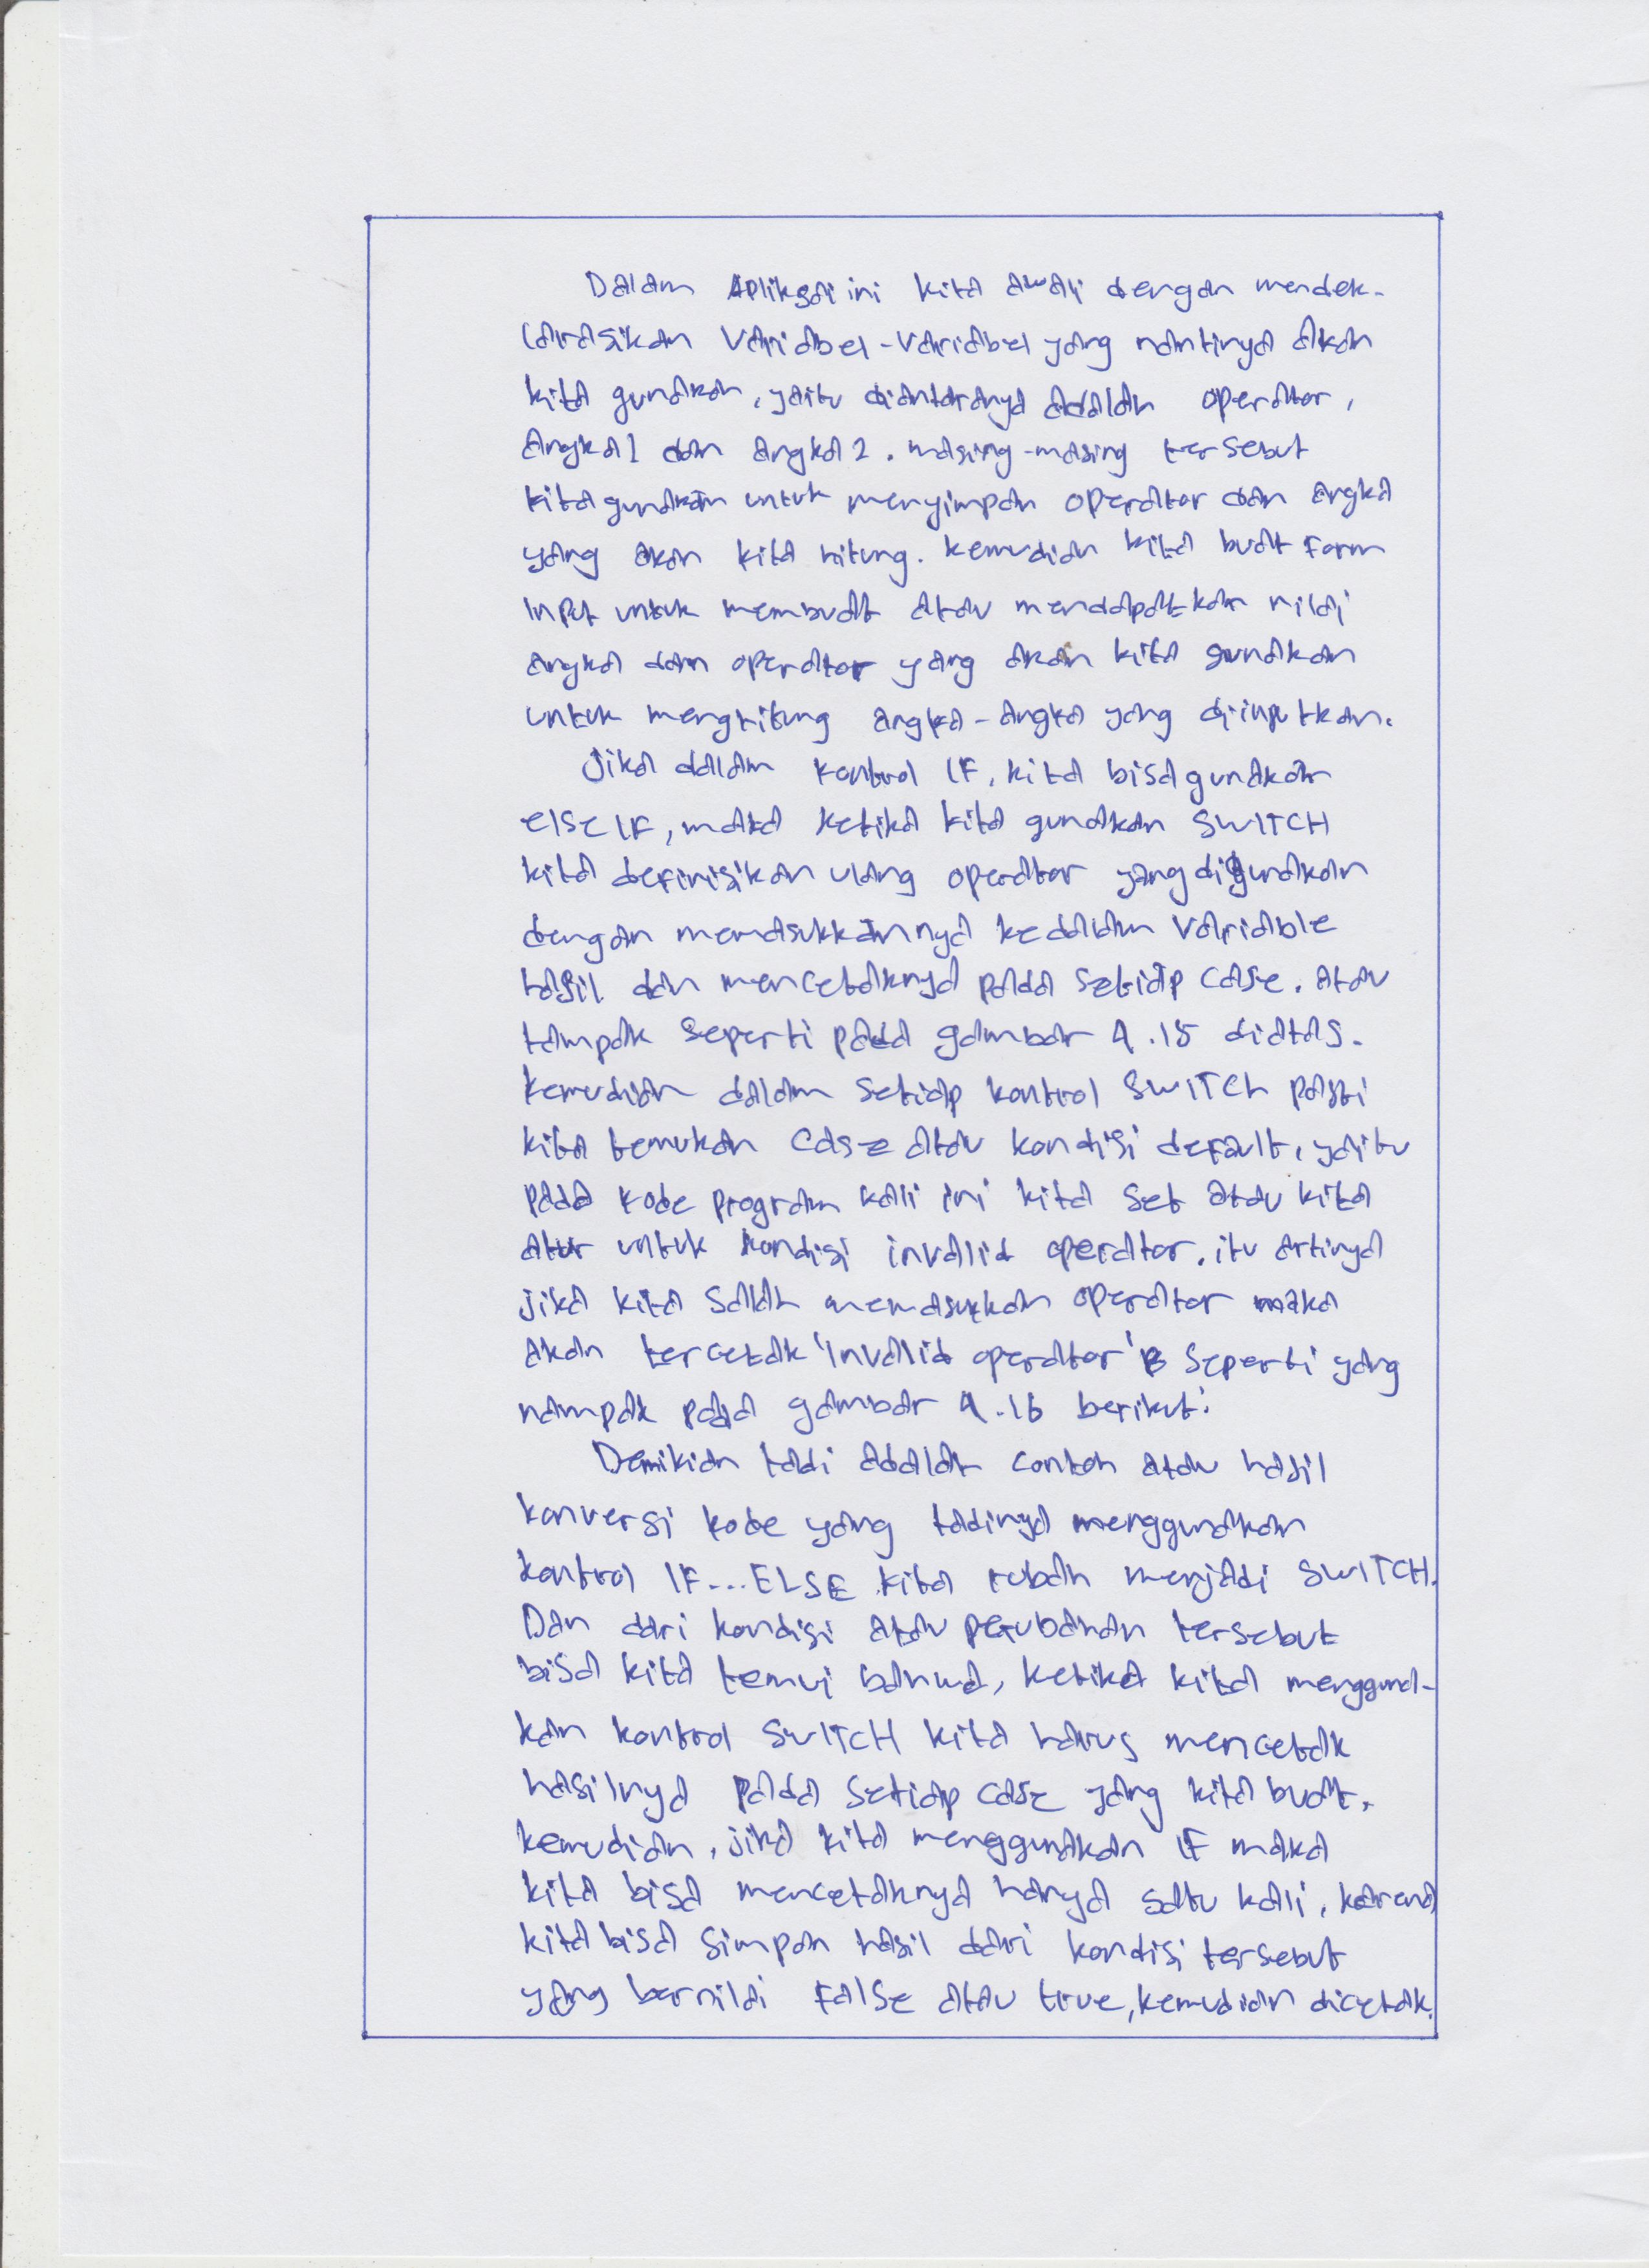 Dalam Aplikasi ini kita awali dengan mendek-
larasikan Variabel-Variabel yang nantinya akan
kita gunakan, yaitu diantaranya adalah operator,
Angka1 dan angka2. masing-masing tersebut
kita gunakan untuk menyimpan operator dan angka
yang akan kita hitung. kemudian kita buat Form
Input untuk membuat atau mendapatkan nilai
angka dan operator yang akan kita gunakan
untuk menghitung angka-angka yang diinputkan.
Jika dalam kontrol IF, kita bisa gunakan
else IF, maka ketika kita gunakan SWITCH
kita definisikan ulang operator yang digunakan
dengan memasukkannya kedalam Variable
hasil dan mencetaknya pada setiap case. Atau
tampak seperti pada gambar 4.15 diatas.
kemudian dalam setiap kontrol SWITCh pasti
kita temukan case atau kondisi default, yaitu
pada kode program kali ini kita set atau kita
atur untuk kondisi invalid operator. itu artinya
jika kita salah memasukkan operator maka
akan tercetak 'Invalid operator' seperti yang
nampak pada gambar 4.16 berikut:
Demikian tadi adalah contoh atau hasil
konversi kode yang tadinya menggunakan
kontrol IF...ELSE kita rubah menjadi SWITCH.
Dan dari kondisi atau perubahan tersebut
bisa kita temui bahwa, ketika kita mengguna-
kan kontrol SWITCH kita harus mencetak
hasilnya pada setiap case yang kita buat.
kemudian, jika kita menggunakan IF maka
kita bisa mencetaknya hanya satu kali, karena
kita bisa simpan hasil dari kondisi tersebut
yang bernilai False atau true, kemudian dicetak.